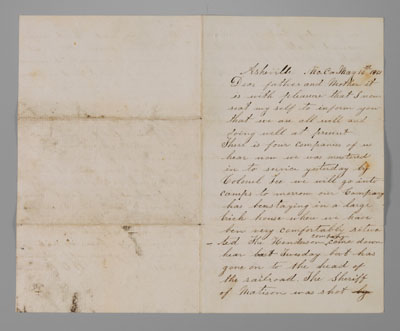 Asheville No. Ca May 16th 1861
Dear father and Mother it
is with pleasure that I now
seat my self to inform you
that we are all well and
doing well at present
There is four companies of us
hear now we was mustered
in to service yesterday by
Colonel Lee we will go into
camps to morrow our Company
has been staying in a large
brick house where we have
ben very comfortably
company
ed The Henderson came down
hear last Tuesday but has
gone on to the head of
the railroad. The Sheriff
of Madison was shot by